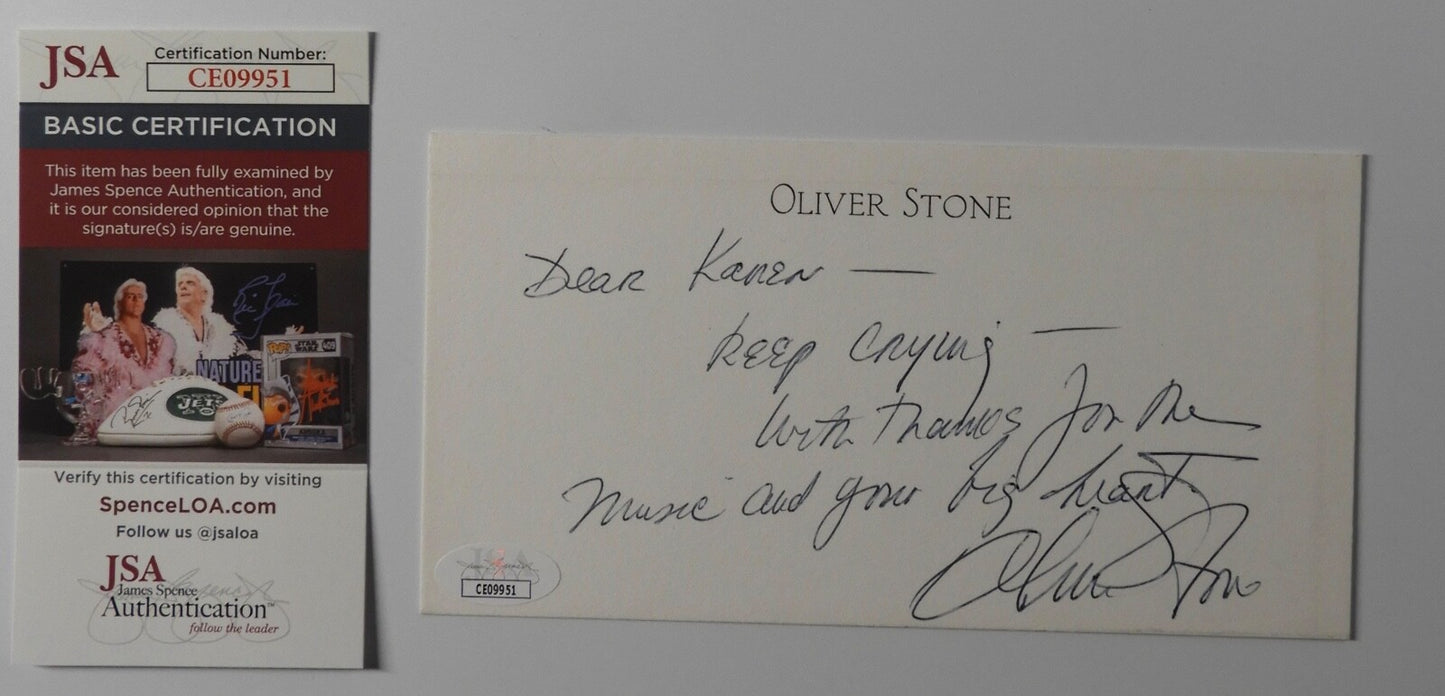 JSA
Certification Number:
CE09951
BASIC CERTIFICATION
This item has been fully examined by
James Spence Authentication, and
it is our considered opinion that the
signature(s) is/are genuine.
NATURE
JETS
POP!
STAR WARS
409
Verify this certification by visiting
SpenceLOA.com
Follow us @jsaloa
JSA
James Spence
Authentication™
follow the leader
OLIVER STONE
Dear Karen —
Keep crying —
With thanks for the
music and your big heart.
Oliver Stone
JSA
CE09951